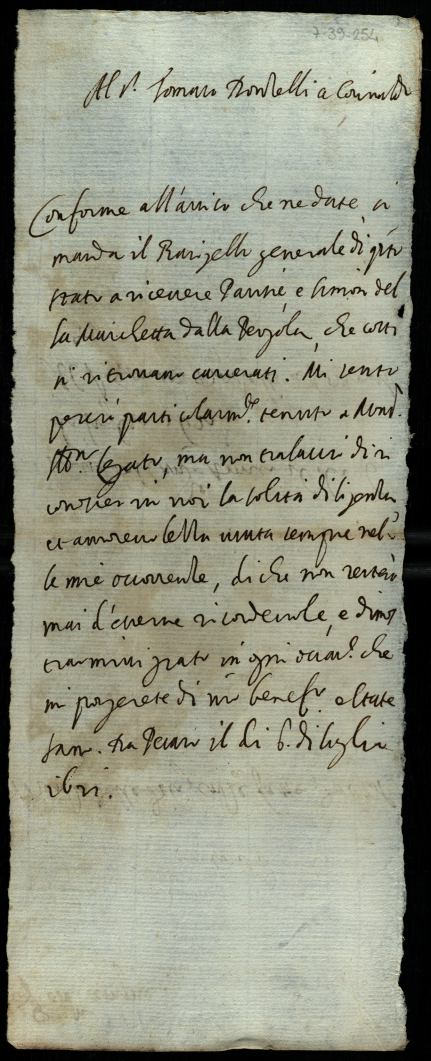 7-39-254
Al S.r Tomaso Rondelli a Corinaldo
Conforme all'aviso che ne date, si
manda il Barigello generale di q.to
stato a ricevere e Simon del
la Marchetta dalla Pergola, che costì
si ritrovano carcerati. Mi sento
perciò particolarm.te tenuto a Mons.
Legato, ma non tralascio di ri
conoscer in voi la solita diligenza,
et amorevolezza usata sempre nel
le mie occorrenze, di che non resterò
mai d'esserne ricordevole, e dimos
trarmivi grato in ogni occas.e che
mi porgerete di v.ro benef.o e state
sano. Da Pesaro il dì 6. di luglio